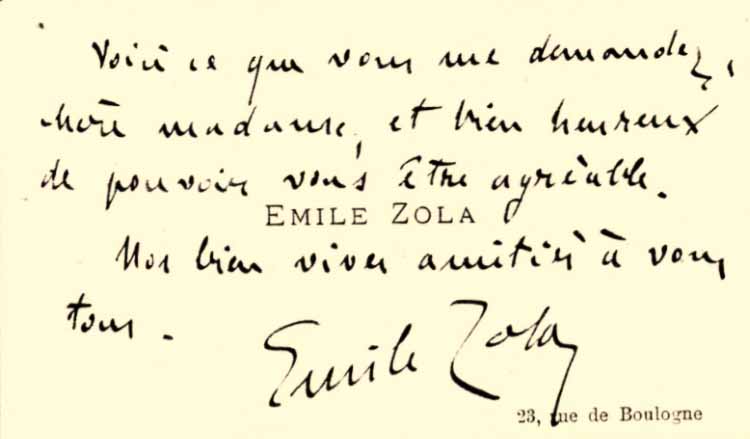 Voici ce que vous me demandez,
chère madame, et bien heureux
de pouvoir vous être agréable.
EMILE ZOLA
Nos bien vives amitiés à vous
tous.
Emile Zola
23, rue de Boulogne